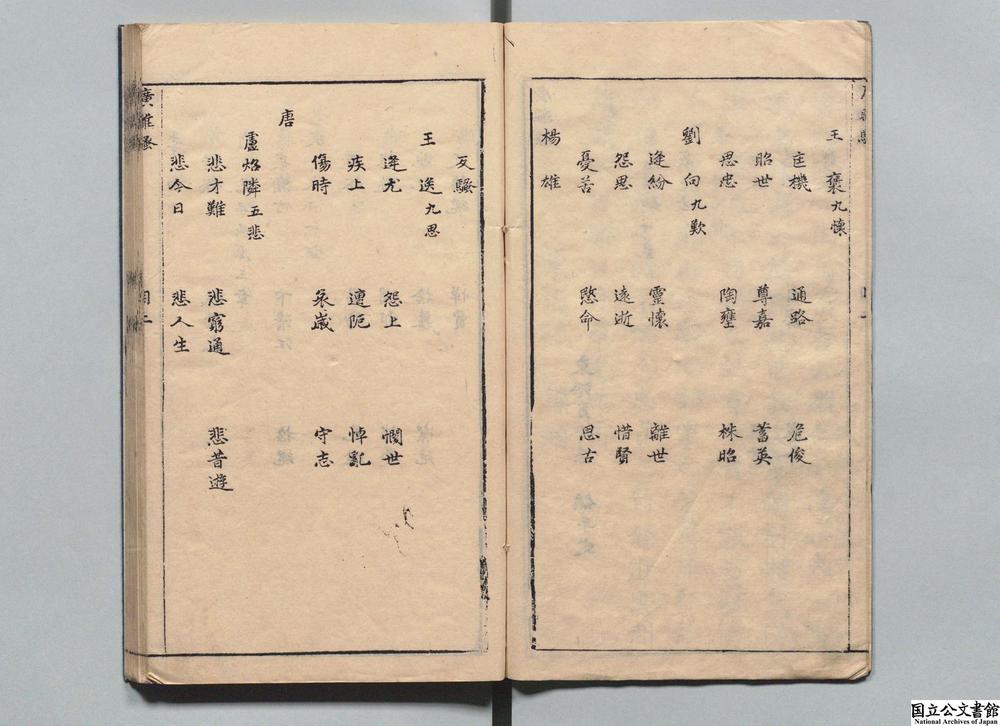 王褒九懷
匡機 通路 危俊
昭世 尊嘉 蓄英
思忠 陶壅 株昭
劉向九歎
逢紛 靈懷 離世
怨思 遠逝 惜賢
憂苦 愍命 思古
楊雄
反騷
王逸九思
逢尤 怨上 憫世
疾上 遭阨 悼亂
傷時 哀歲 守志
唐
盧炤隣五悲
悲才難 悲窮通 悲昔遊
悲今日 悲人生
廣離騷
目二
国立公文書館
National Archives of Japan